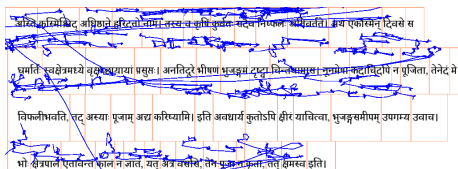 अस्ति कस्मिंश्चित् अधिष्ठाने हरिदत्तो नाम। तस्य च कृषिं कुर्वतः सदैव निष्फलः अतिवर्तते। अथ एकस्मिन् दिवसे स
घर्मार्तः स्वक्षेत्रमध्ये वृक्षच्छायायां प्रसुप्तः। अनतिदूरे भीषणं भुजङ्गमं दृष्ट्वा चिन्तयामास। नूनमेषा कदाचिदपि न पूजिता, तेनेदं मे
विफलीभवति, तद् अस्याः पूजाम् अद्य करिष्यामि। इति अवधार्य कुतोऽपि क्षीरं याचित्वा, भुजङ्गसमीपम् उपगम्य उवाच।
भोः क्षेत्रपाल एतावन्तं कालं न ज्ञातं, यत् अत्र वससि, तेन पूजा न कृता, तत् क्षमस्व इति।